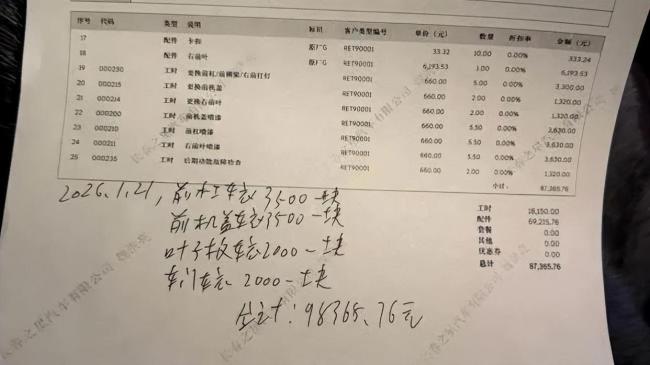 序号 代码 类型 说明 标识 客户类型编号 单价（元） 数量 折扣率 金额（元）
17 配件 卡扣 原厂G RET90001 33.32 10.00 0.00% 333.24
18 配件 右前叶 原厂G RET90001 6,193.53 1.00 0.00% 6,193.53
19 000230 工时 更换前杠/前横梁/右前杠灯 RET90001 660.00 5.00 0.00% 3,300.00
20 000215 工时 更换前机盖 RET90001 660.00 2.00 0.00% 1,320.00
21 000214 工时 更换右前叶 RET90001 660.00 2.00 0.00% 1,320.00
22 000200 工时 前机盖喷漆 RET90001 660.00 5.50 0.00% 3,630.00
23 000210 工时 前杠喷漆 RET90001 660.00 5.50 0.00% 3,630.00
24 000211 工时 右前叶喷漆 RET90001 660.00 5.50 0.00% 3,630.00
25 000235 工时 后期功能故障检查 RET90001 660.00 2.00 0.00% 1,320.00
小计： 87,365.76
工时 18,150.00
配件 69,215.76
套餐 0.00
其他 0.00
优惠券 0.00
总计 87,365.76
2026.1.21，前杠车衣3500一块
前机盖车衣3500一块
叶子板车衣2000一块
车门车衣2000一块
总计：98365.76元
长春之星汽车有限公司